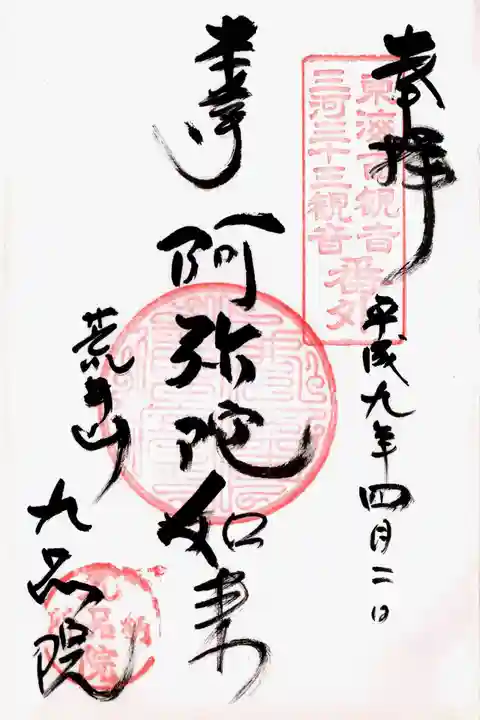 奉拝
平成九年四月二日
東海百観音
三河三十三観音 番外
本尊
阿弥陀如来
荒井山
九品院
九品院